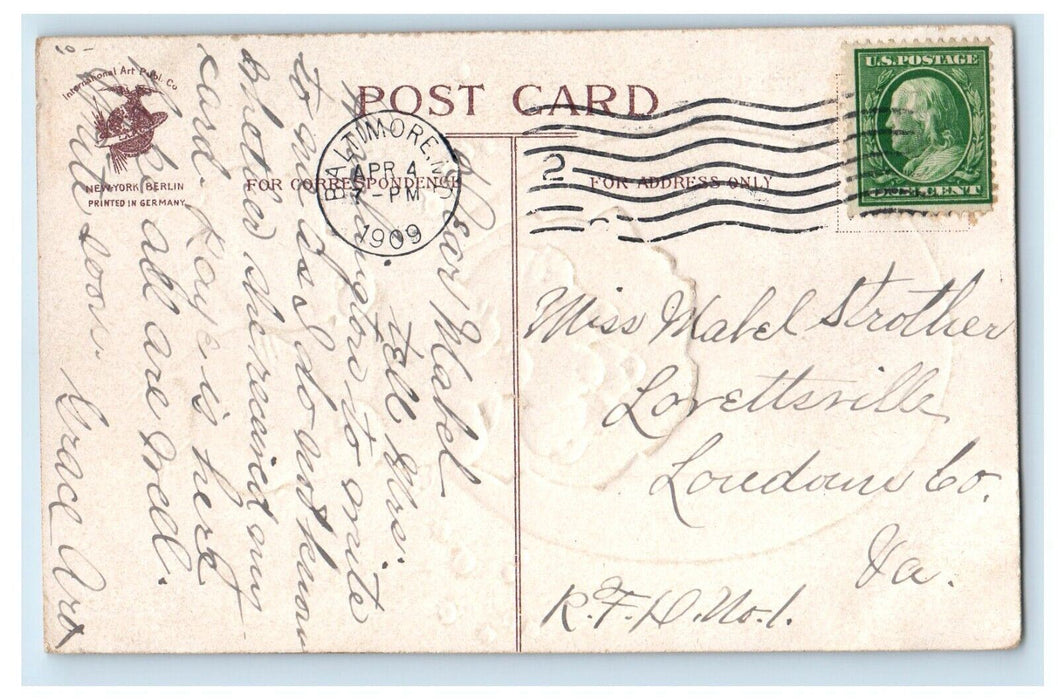 International Art Publ. Co
NEW YORK BERLIN
PRINTED IN GERMANY
POST CARD
FOR CORRESPONDENCE
FOR ADDRESS ONLY
BALTIMORE, MD
APR 4
7-PM
1909
2
U.S. POSTAGE
ONE CENT
Miss Mabel Strother
Lovettsville
Loudoun Co.
Va.
R.F.D. No. 1.
Dear Mabel
tell Mrs.
to write
to me as I do not know
Whether she received my
card. Kaye is here
We all are well.
Write soon. Grace